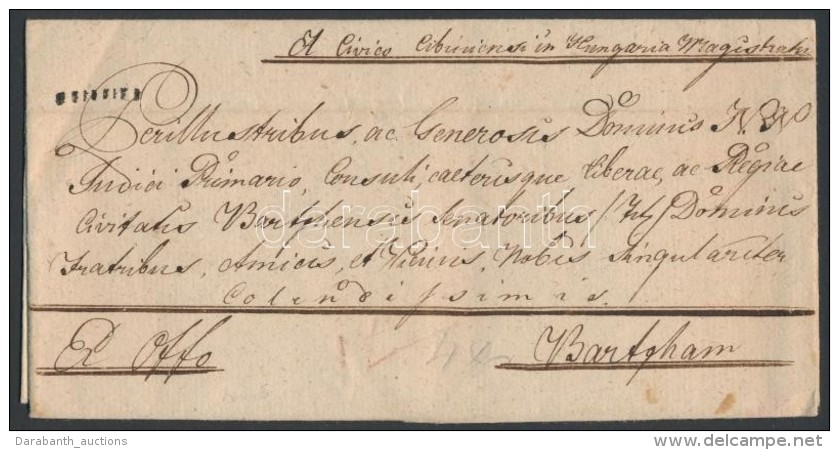 A Civico Cibiniensi in Hungaria Magistratu
Perillustribus, ac Generosis Dominis N. N.
Judici Primario, Consuli, caeterisque Liberae, ac Regiae
Civitatis Bartphensis Senatoribus (Titl) Dominis
Fratribus, Amicis, et Vicinis, Nobis Singulariter
Colendissimis.
Ex Offo
Bartpham
darabanth
Darabanth_auctions
www.delcampe.net